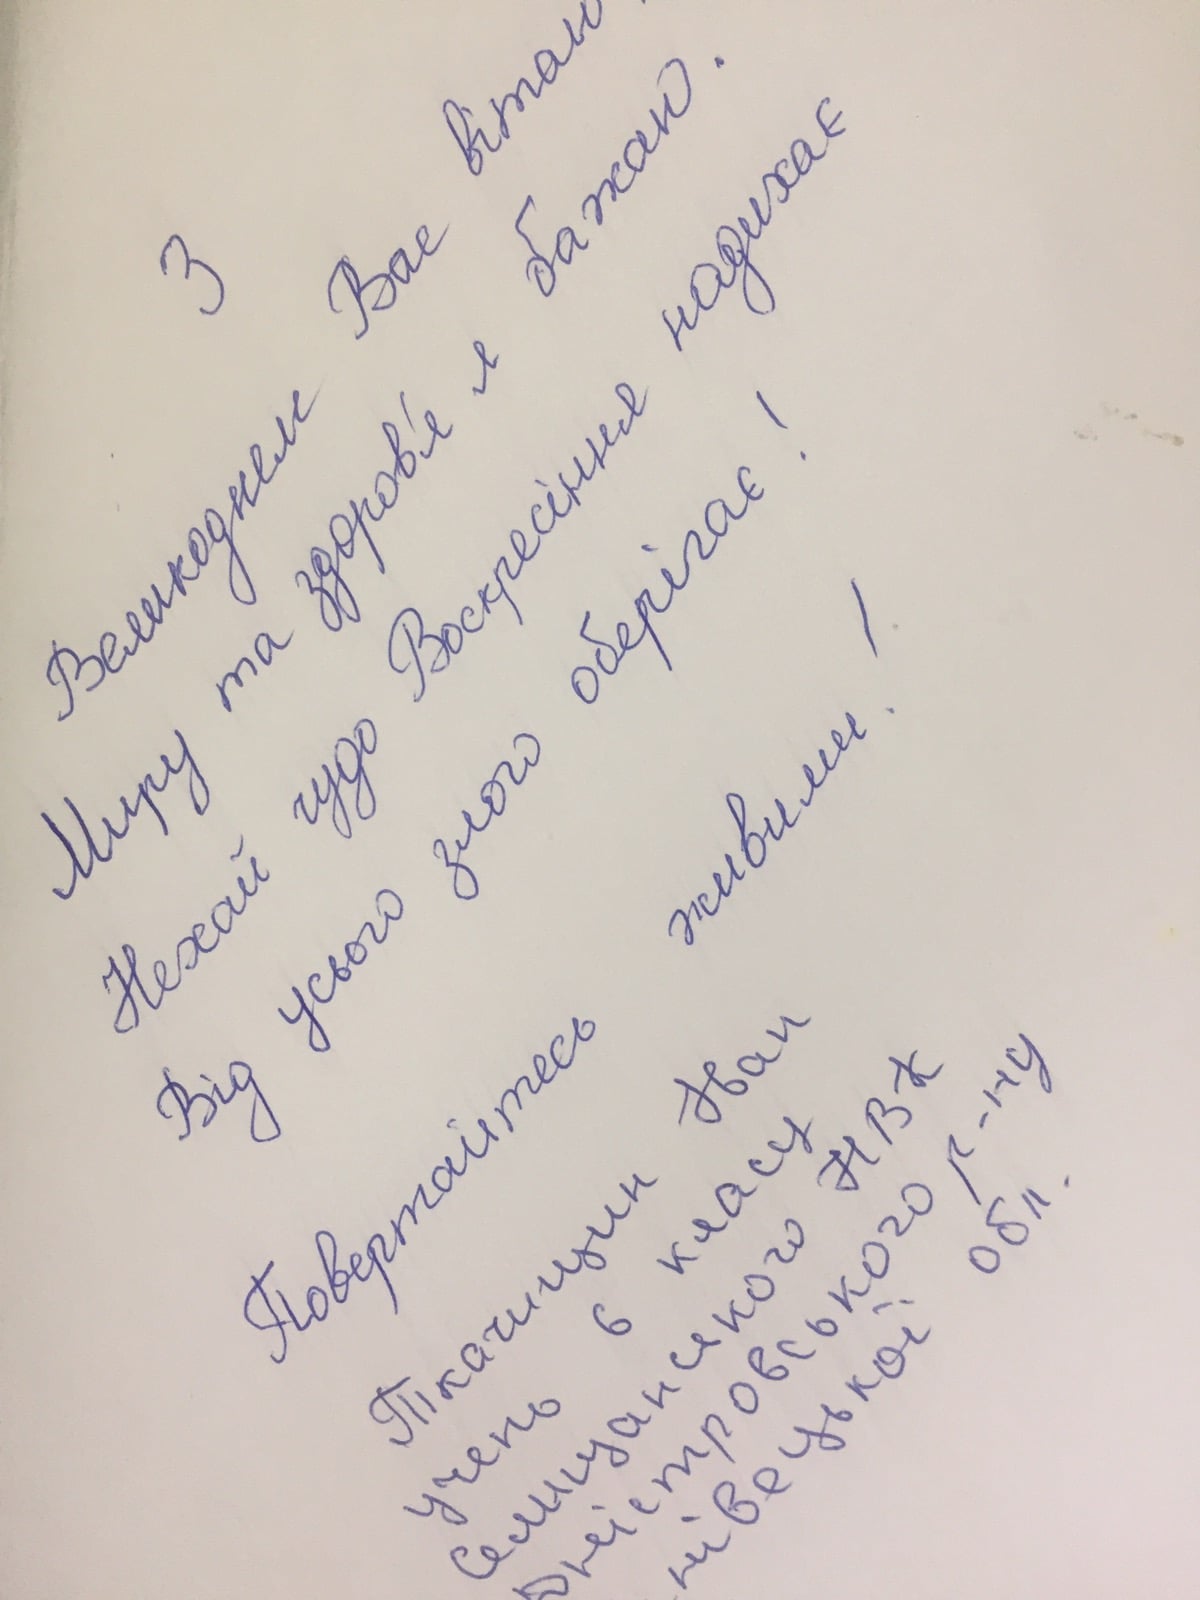 З Великоднем Вас вітаю
Миру та здоров'я я бажаю.
Нехай чудо Воскресіння надихає
Від усього злого оберігає!
Повертайтесь живими!
Ткачишин Іван
учень 6 класу
НВК
ністровського р-ну
нівецької обл.